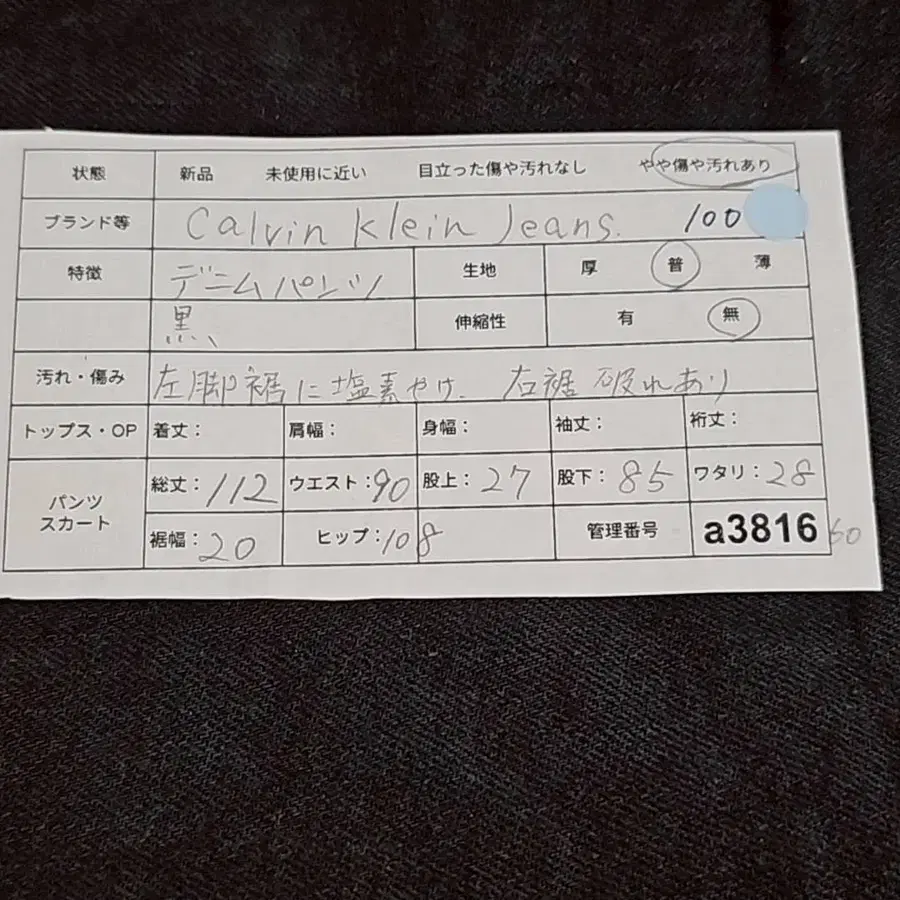 状態 新品 未使用に近い 目立った傷や汚れなし やや傷や汚れあり
ブランド等 Calvin Klein Jeans. 100
特徴 デニムパンツ 生地 厚 普 薄
黒、 伸縮性 有 無
汚れ・傷み 左脚裾に塩素やけ、右裾破れあり
トップス・OP 着丈: 肩幅: 身幅: 袖丈: 裄丈:
パンツ スカート 総丈:112 ウエスト:90 股上:27 股下:85 ワタリ:28
裾幅:20 ヒップ:108 管理番号 a3816 60